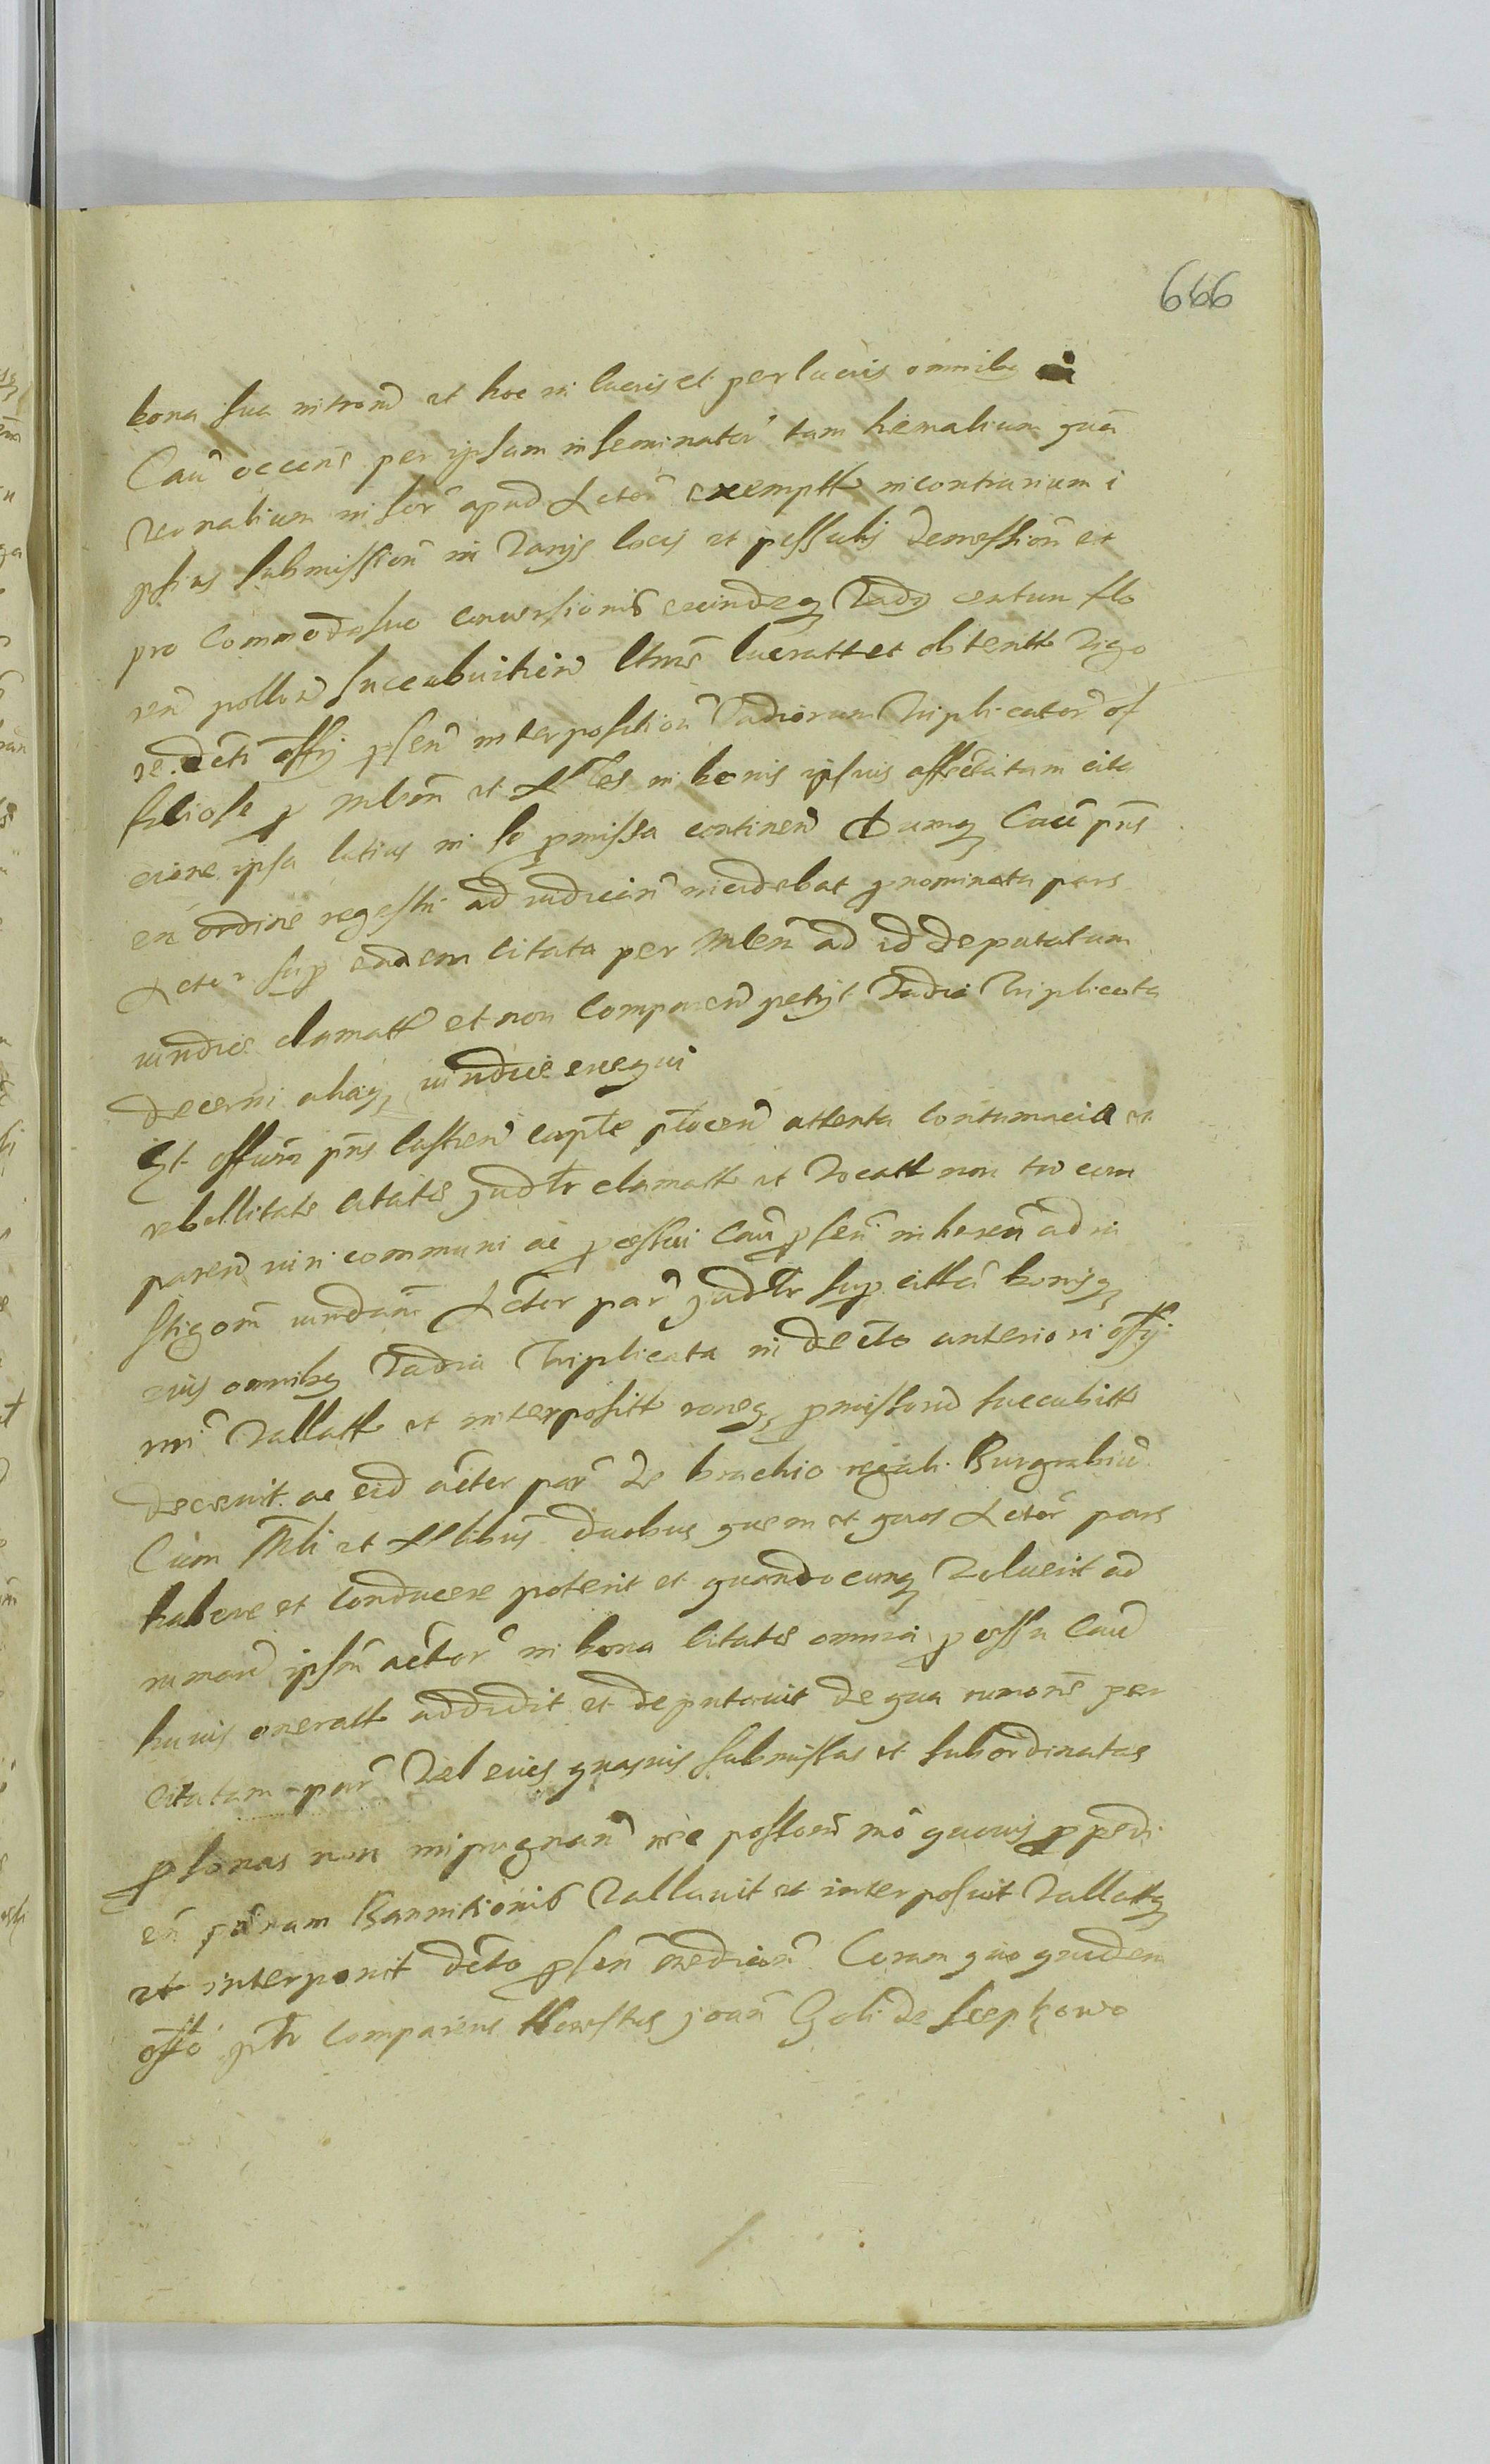 666
bona sua intromr et hoc in lucris et perlucris omnibq
Cau occone per ipsum inseminator tam hiemalium quā
vernalium in sor̃ apud Actor̃ exemptt in contrarium i
psius submissioñ in varijs locis et passulis demessioñ et
pro commodo suo conversionis eiusdeq vadij centum flo
ren pollon succubuition ltmē lucratt et obtentt vigo
re. dc̃ti offij pñsen interpositioñ vadiorum triplicator of
ficiose p mlem et Nles in bonis ipsius affectatam cita
cione ipsa latius in se p̱missa continen dumq Cau pñs
ex ordine regestri ad iudiciũ incidebat prenominata pars
Actor sup eadem citata per mlem ad id deputatum
iuridice clamatt et non comparen petijt vadia triplicata
decerni aliaq, iuridice exequi
Et offiũm pñs castren capte̱ ptocen attenta contumacia et
rebellitate citatis judlr clamatt et vocatt non tn com
paren iuri communi ac pcessui Cau psen inheren ad in
stigom iuridicam Actor par judlr sup cittā bonisq
eius omnibq vadia triplicata in decto anteriori offij
vallatt et interpositt roneq, p̱missord succubitt
decrevit ac eid actor par de brachio regali Burgrabiũ
Cum Mli et Nlibus duobus quem et quos Actor pars
habere et conducere poterit et quandocunq voluerit ad
ipsm actor in bona citatis omnia pcessu Cau
huius oneratt addidit et deputavit de qua rumone per
citatam par vel eius quasvis submissas et subordinatas
p̱sonas non impugnan nec possoem mõ quovis p̱pedi
en pœnam Bannitionis vallavit et interposuit vallatq
et interponit dc̃to p̱sen median Coram quo quidem
offo ptr comparens Honestus joañ Goli de